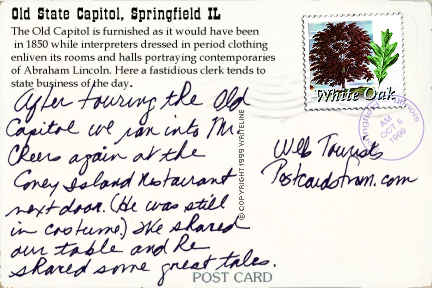 Old State Capitol, Springfield IL
The Old Capitol is furnished as it would have been
in 1850 while interpreters dressed in period clothing
enliven its rooms and halls portraying contemporaries
of Abraham Lincoln. Here a fastidious clerk tends to
state business of the day.
After touring the Old
Capitol we ran into Mr.
Cheers again at the
Coney Island Restaurant
next door. (He was still
in costume) We shared
our table and he
shared some great tales.
© COPYRIGHT 1999 WRITELINE
White Oak
AM
OCT 6
1999
Web Tourists
Postcardsfrom.com
POST CARD